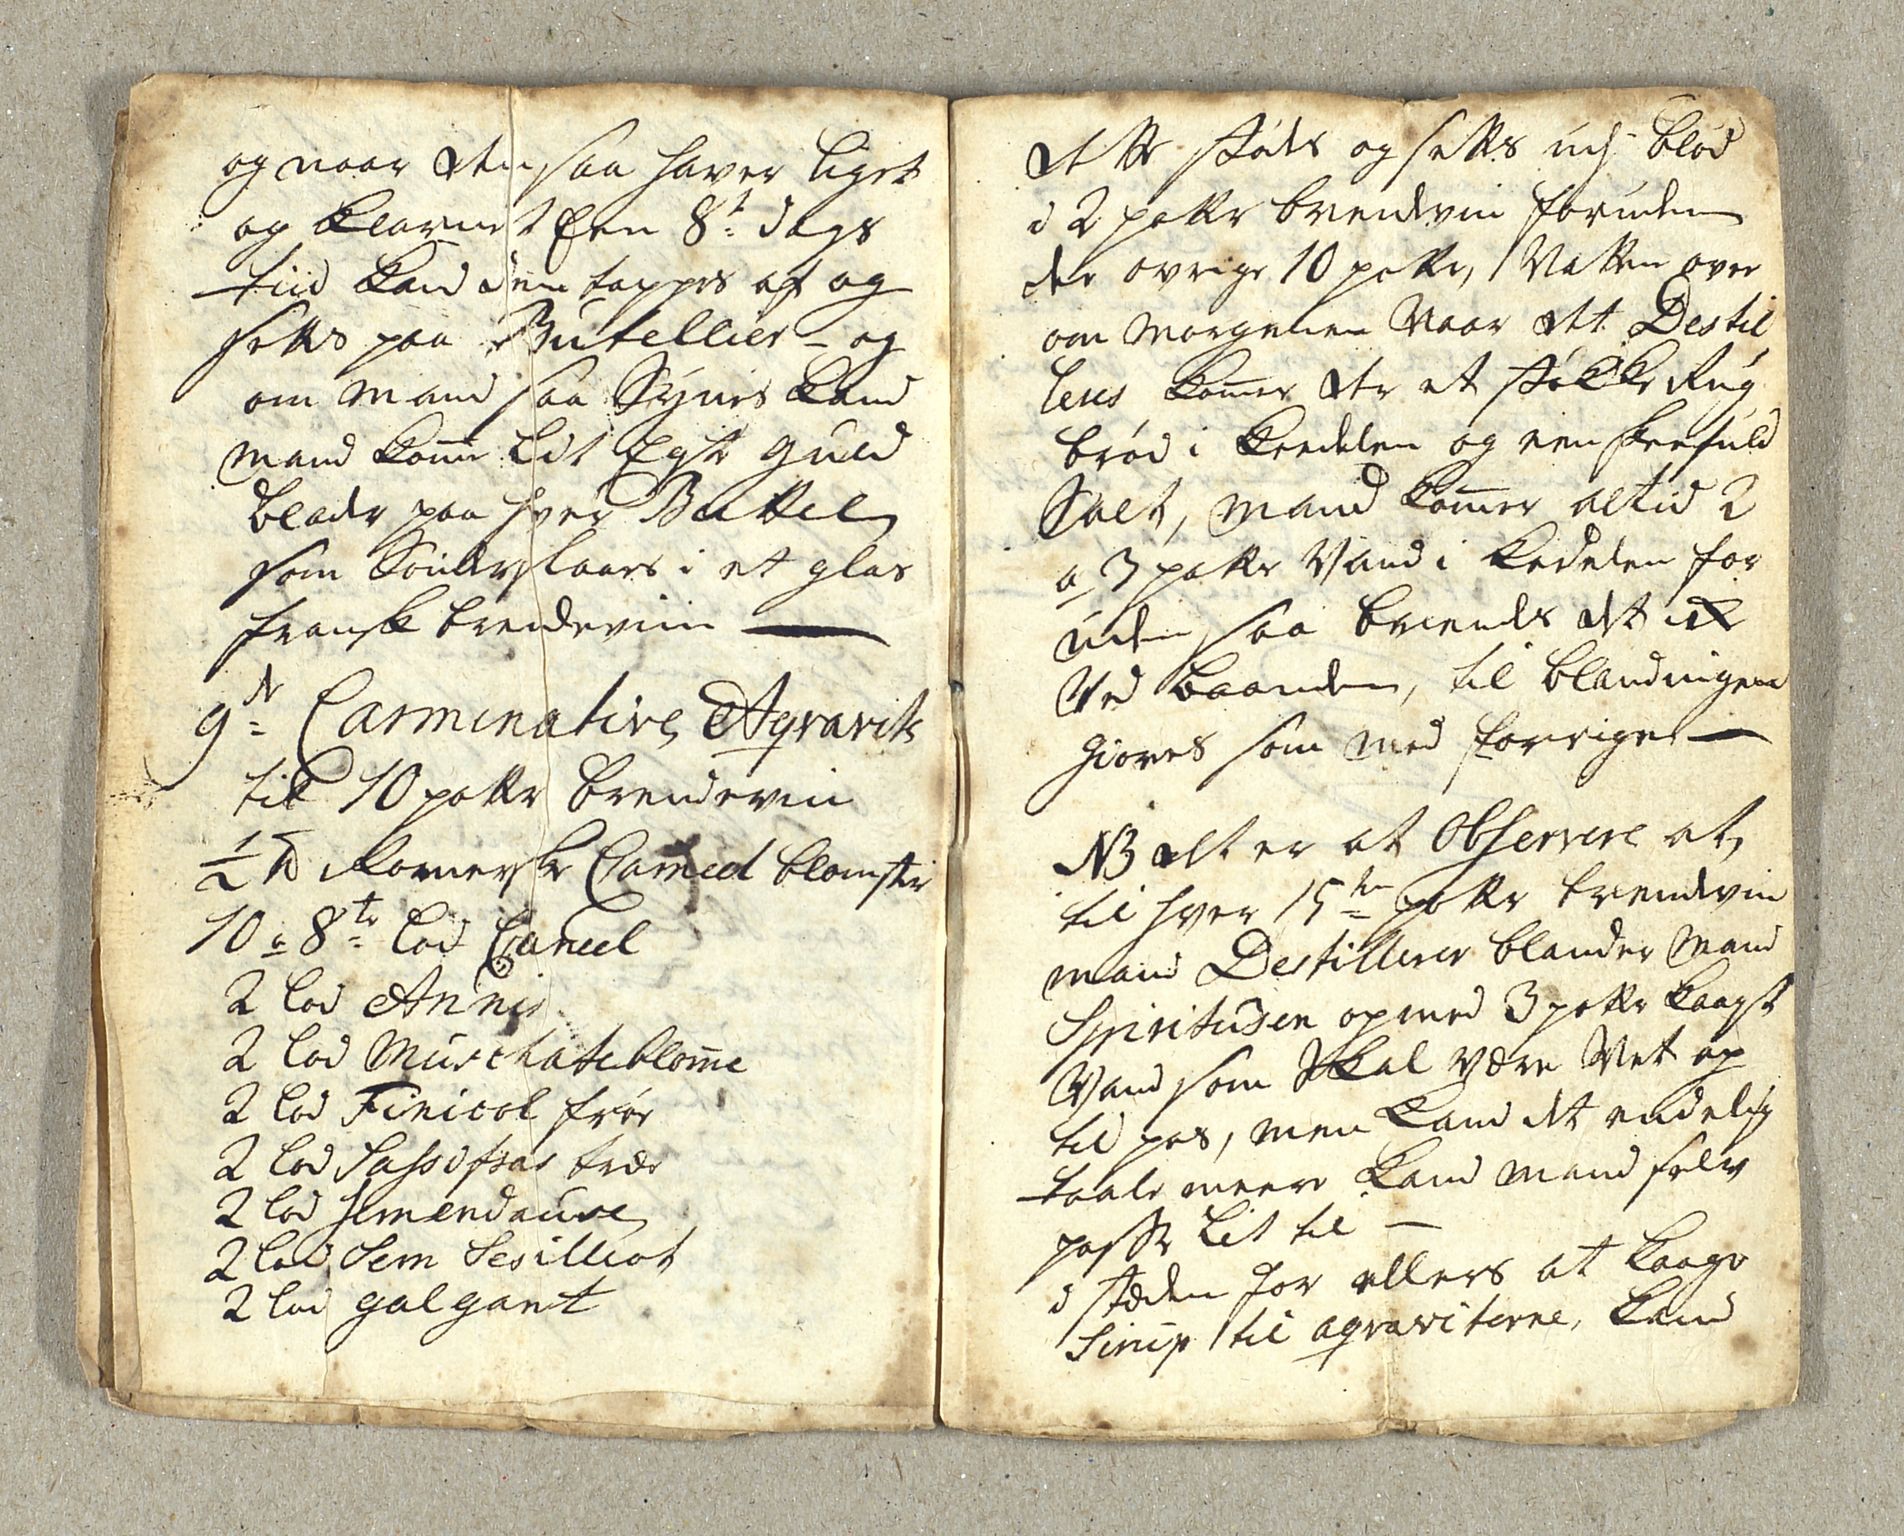 og naar den saa haver liget
og klarnet Een 8t dags
tiid kand den tappes af og
settes paa Butellier - og
om mand saa Synes kand
mand komme Lidt Egte guld
blade paa hver Buttel
som Sønderslaaes i et glas
fransk brendeviin —
9de Carminative Aqvavits
til 10 potter brendeviin
½ ℔ Romerske Cameel blomster
10 a 8te lod Caneel
2 lod Annis
2 lod Muschateblomme
2 lod Finicol frøe
2 lod Sassofras træe
2 lod
2 lod Sem
2 lod galgant
dette stødes og settes udj blød
i 2 potter brendviin foruden
de øvrige 10 potter, Natten over
om Morgenen Naar det Destil
leres kommer der et støkke Rug
brød i keedelen og een skeefuld
Salt, mand kommer altid 2
a 3 potter Vand i kedelen for
uden saa brendes det
Ved baanden, til blandingen
giøres som med forrige —
NB det er at Observere at,
til hver 15ten potter brendviin
mand Destillerer blander Mand
Spiritusen op med 3 potter kaagt
Vand som skal være Vet op
til pas, men kand det endelig
taale meere kand mand selv
passe Lit til —
i stæden for ellers at kaage
Sirup til aqvaviterne, kand